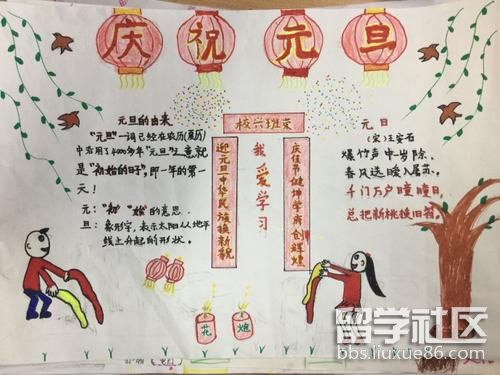 庆祝元旦
元旦的由来
"元旦"一词已经在农历(夏历)
中沿用了4000多年"元旦"之意就
是"初始的日子",即一年的第一
天!
元:"初""始"的意思
旦:象形字,表示太阳从地平
线上升起的形状。
校兴班荣
迎元旦中华民族换新貌
我爱学习
庆佳节健坤学府创辉煌
花炮
元日
(宋)王安石
爆竹声中一岁除,
春风送暖入屠苏。
千门万户曈曈日,
总把新桃换旧符。
留学社区
bbs.liuxue86.com